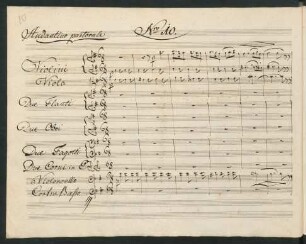 Andantino pastorale No. 10.
Violini
Viole
Due Flauti
Due Oboi
Due Fagotti
Due Corni in C
Violoncello
Contra Basso